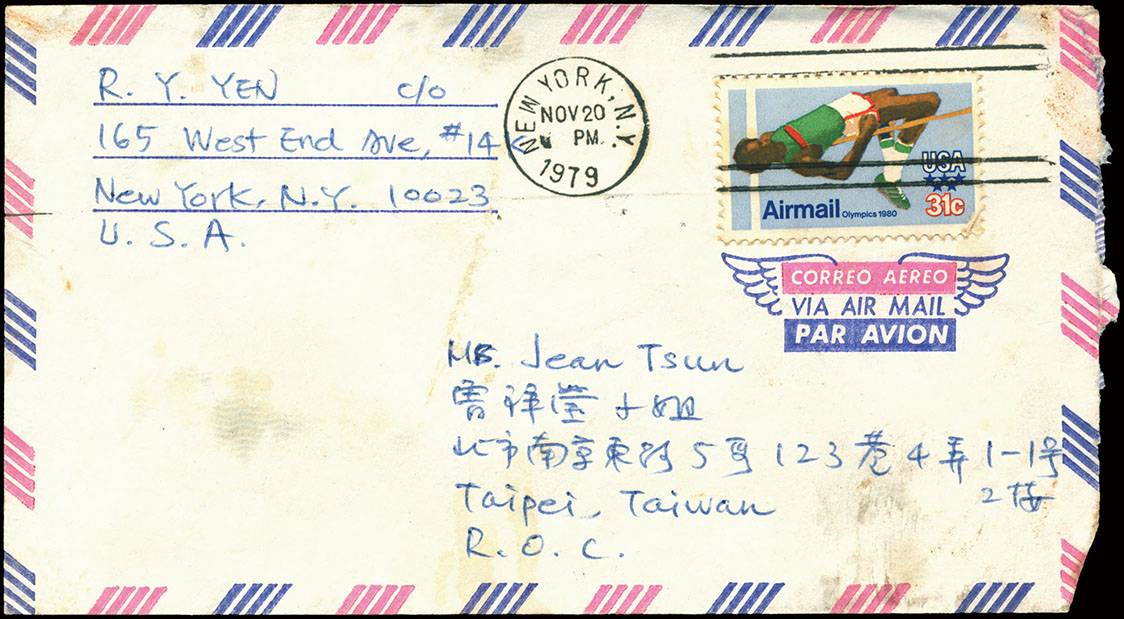 R. Y. YEN c/o
165 West End Ave, #14
New York, N.Y. 10023
U. S. A.
NEW YORK, N.Y.
NOV 20
PM
1979
USA
31c
Airmail Olympics 1980
CORREO AEREO
VIA AIR MAIL
PAR AVION
MS. Jean Tsun
曾祥莹小姐
北市南京東路5段123巷4弄1-1号
2楼
Taipei, Taiwan
R. O. C.